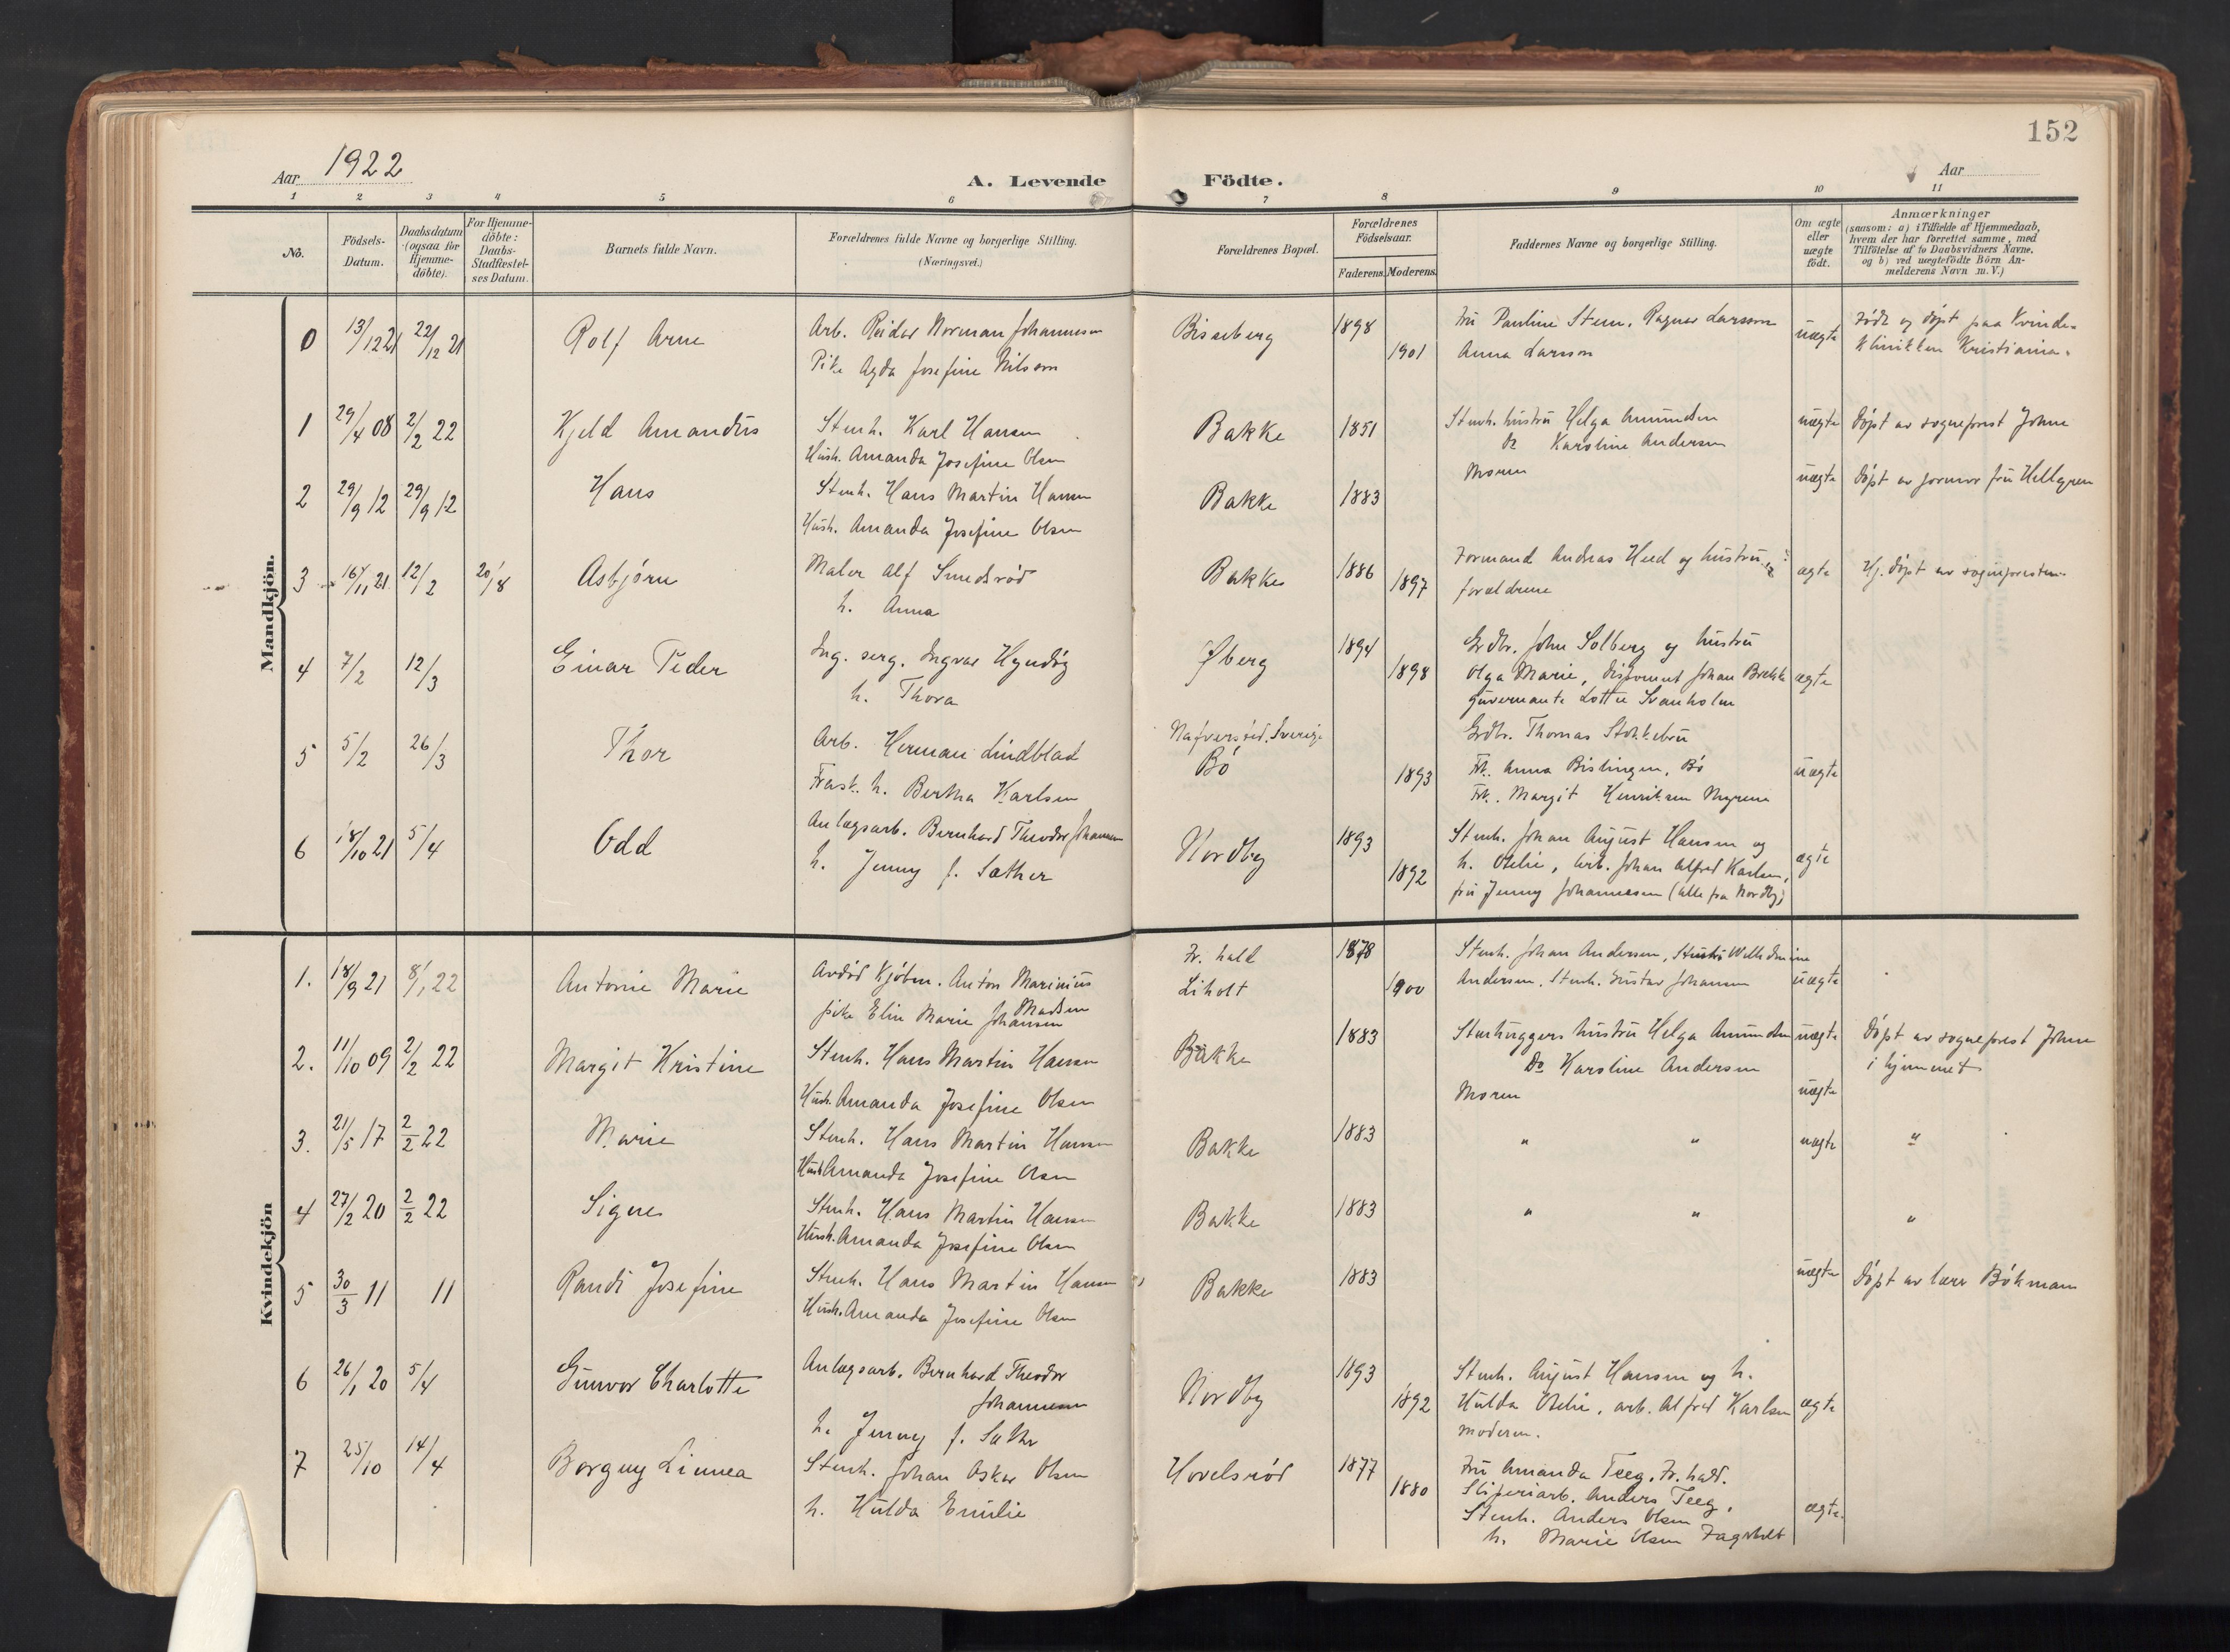 152
Aar 1922
A. Levende Födte.
Aar
1 2 3 4 5 6 7 8 9 10 11
No.
Födsels-Datum.
Daabsdatum (ogsaa for Hjemme-döbte).
For Hjemme-döbte: Daabs-Stadfæstel-ses Datum.
Barnets fulde Navn.
Forældrenes fulde Navne og borgerlige Stilling. (Næringsvei.)
Forældrenes Bopæl.
Forældrenes Födselsaar.
Faderens. Moderens.
Faddernes Navne og borgerlige Stilling.
Om ægte eller uægte födt.
Anmærkninger
(saasom: a) i Tilfælde af Hjemmedaab,
hvem der har forrettet samme, med
Tilföielse af to Daabsvidners Navne.
og b) ved uægtefödte Börn An-
melderens Navn m. V.)
Mandkjön.
0 13/12 21 22/12 21 Rolf Arne Arb. Reidar Norman Johannesen Bisseberg 1898 Fru Pauline Steen, Ragnar Larsson uægte Född og döpt paa Kvinde-
Pike Agda Josefine Nilsson 1901 Anna Larsson Klinikken Kristiania.
1 29/4 08 2/2 22 Kjeld Amandus Stenh. Karl Hansen Bakke 1851 Stenh. hustru Helga Amundsen uægte Döpt av sogneprest Johne
Hush. Amanda Josefine Olsen Do Karoline Andersen
Moren
2 29/9 12 29/9 12 Hans Stenh. Hans Martin Hansen Bakke 1883 uægte Döpt av jormor fru Hellgren
Hush. Amanda Josefine Olsen
3 16/11 21 12/2 20/8 Asbjörn Maler Alf Smedsröd Bakke 1886 Formand Andreas Heed og hustru, ægte Hj. döpt av sognepresten
h. Anna 1897 forældrene
4 7/2 12/3 Einar Peder Ing. serg. Ingvar Hyndöy Øberg 1894 Grdbr. John Solberg og hustru
h. Thora 1898 Olga Marie, disponent Johan Brekke ægte
guvernante Lotte Svanholm
5 5/2 26/3 Thor Arb. Herman Lindblad Nafversröd, Sverige Grdbr. Thomas Stokkebru
Bö
Frask. h. Bertha Karlsen 1893 Frk. Anna Bislingen, Bö uægte
Frk. Margit Henriksen Myrene
6 18/10 21 5/4 Odd Anlægsarb. Bernhard Theodor Johannesen Nordby 1893 Stenh. Johan August Hansen og
h. Jenny f. Sæther 1892 h. Otelie, Arb. Johan Alfred Karlsen, ægte
fru Jenny Johannessen (alle fra Nordby)
Kvindekjön
1. 18/9 21 8/1 22 Antonie Marie Avdöd Kjöbm. Anton Marinius Madsen Fr. hald 1878 Stenh. Johan Andersen, Hustru Wilhelmine
pike Elin Marie Johansen Liholt 1900 Andersen, Stenh. Gustav Johansen uægte
2. 11/10 09 2/2 22 Margit Kristine Stenh. Hans Martin Hansen Bakke 1883 Stenhuggers hustru Helga Amundsen uægte Döpt av sogneprest Johne
Hush. Amanda Josefine Olsen Do Karoline Andersen i hjemmet
Moren uægte
3. 21/5 17 2/2 22 Marie Stenh. Hans Martin Hansen Bakke 1883 " " uægte "
Hush. Amanda Josefine Olsen
4 27/2 20 2/2 22 Signe Stenh. Hans Martin Hansen Bakke 1883 " " "
Hush. Amanda Josefine Olsen
5 30/3 11 11 Randi Josefine Stenh. Hans Martin Hansen Bakke 1883 uægte Döpt av lærer Bökman
Hush. Amanda Josefine Olsen
6 26/1 20 5/4 Gunvor Charlotte Anlægsarb. Bernhard Theodor Johannesen Nordby 1893 Stenh. August Hansen og h.
h. Jenny f. Sæther 1892 Hulda Otelie, arb. Alfred Karlsen ægte
moderen.
7 25/10 14/4 Borgny Linnea Stenh. Johan Oskar Olsen Hovelsröd 1877 Fru Amanda Teeg, Fr. hald.
h. Hulda Emilie 1880 Sliperiarb. Anders Teeg,
Stenh. Anders Olsen ægte
h. Marie Olsen Fagerholt